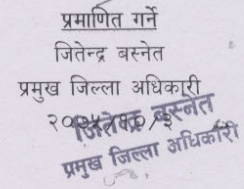 प्रमाणित गर्ने
जितेन्द्र बस्नेत
प्रमुख जिल्ला अधिकारी
जितेन्द्र बस्नेत
प्रमुख जिल्ला अधिकारी